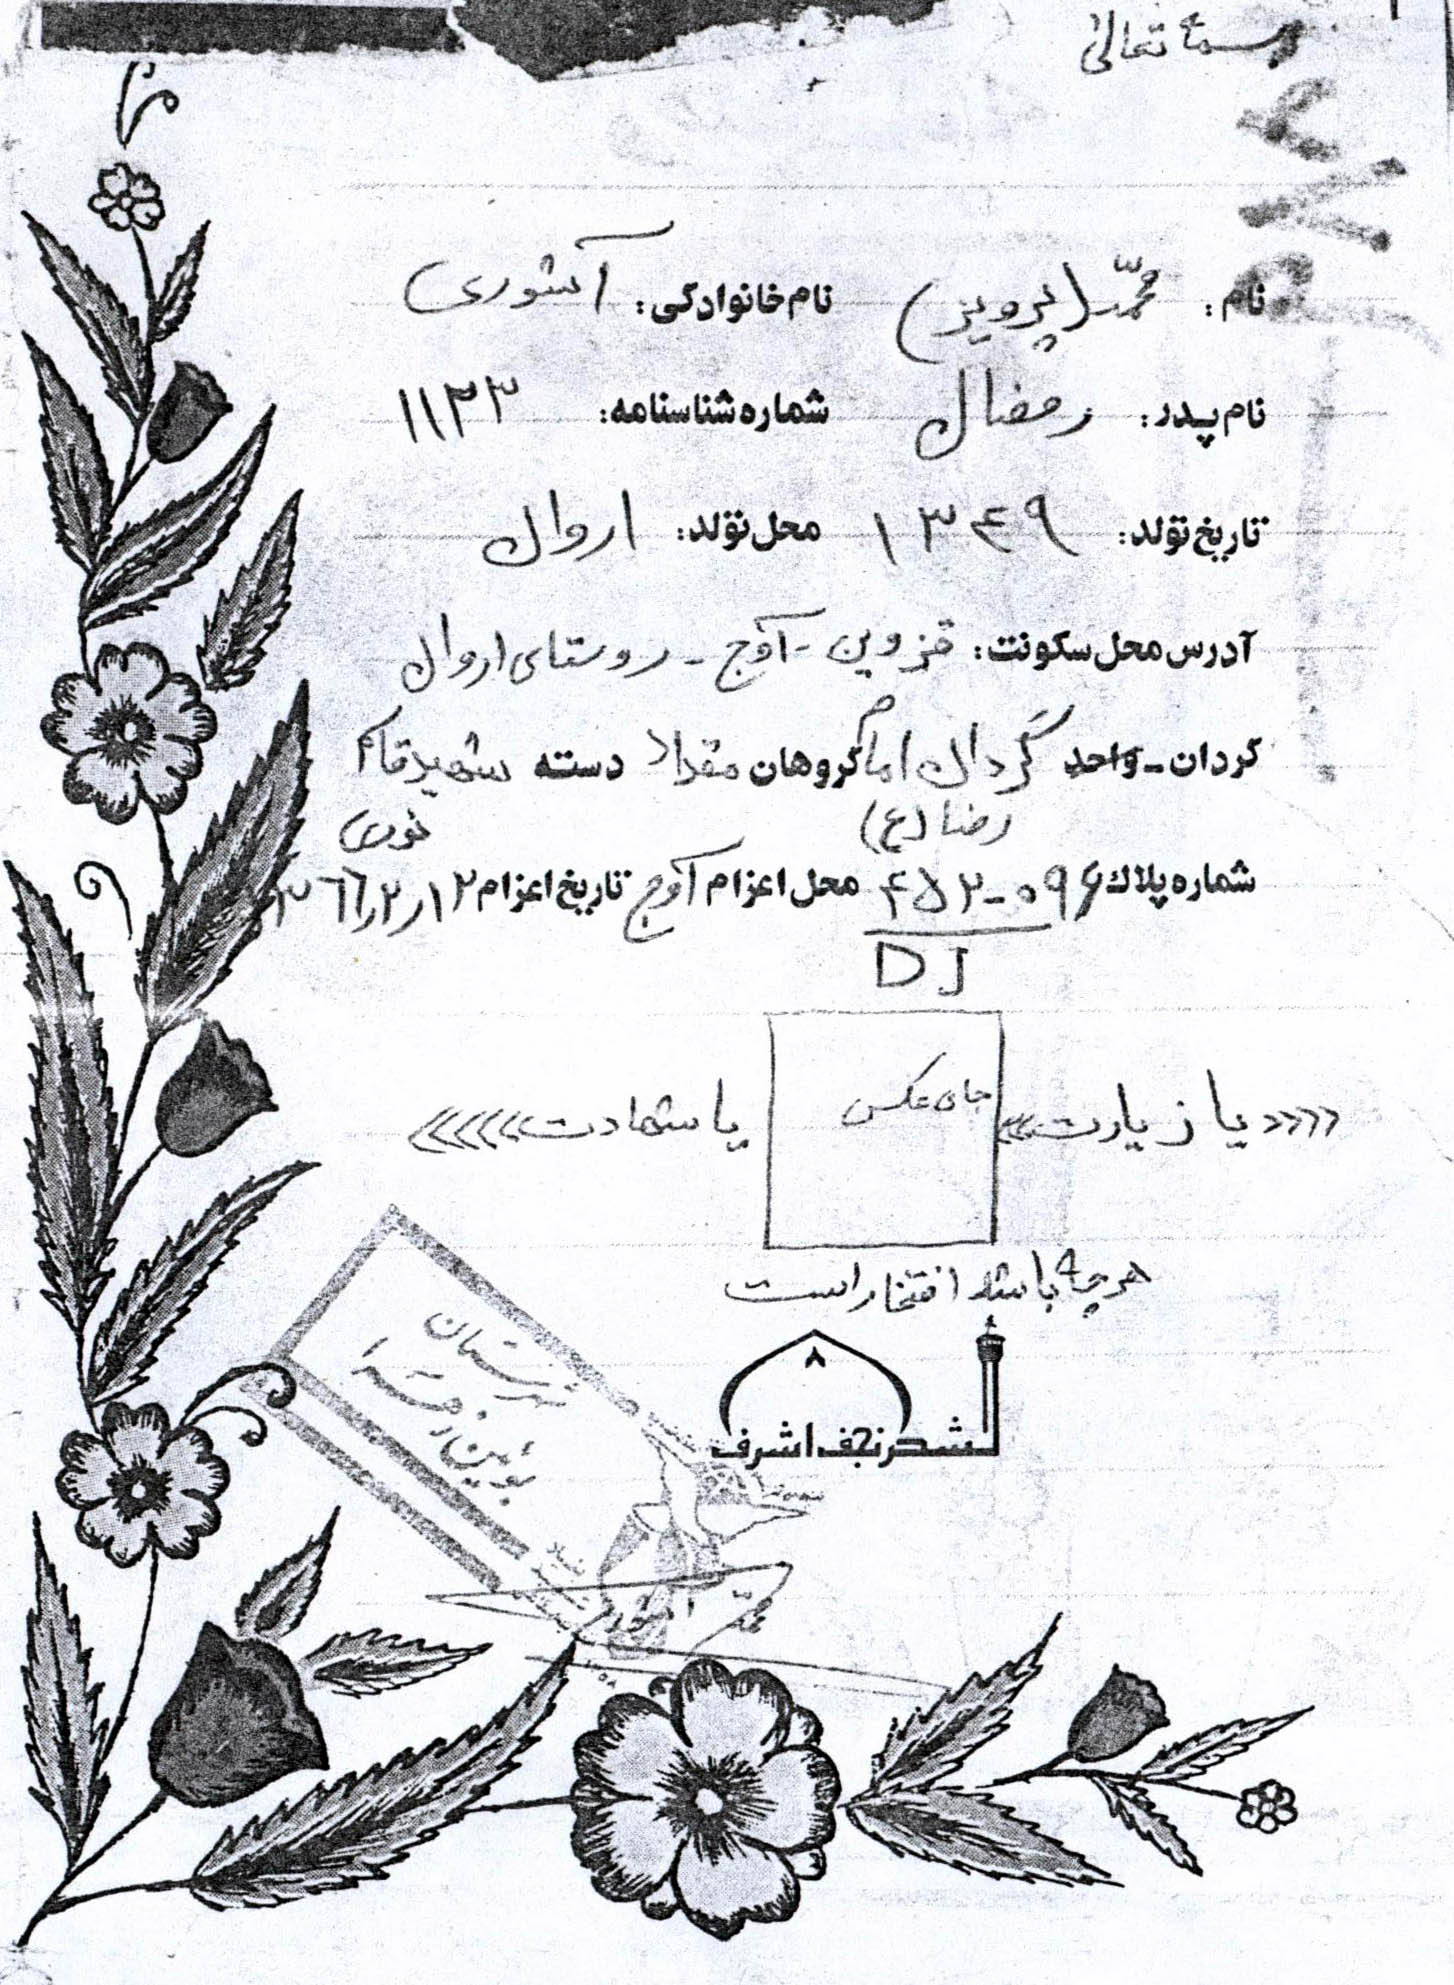 بسمه تعالی
نام: محمد (پرویز) نام خانوادگی: آشوری
نام پدر: رمضان شماره شناسنامه: ۱۱۲۳
تاریخ تولد: ۱۳۴۹ محل تولد: اروان
آدرس محل سکونت: قزوین - آوج - روستای اروان
گردان - واحد گردان امام گروهان مقداد دسته شهید قائم
رضا (ع) نوری
شماره پلاک ۴۵۲-۰۹۶ محل اعزام آوج تاریخ اعزام ۱۲/۲/۱۳۶۶
DJ
««« یا زیارت »» جای عکس یا شهادت »»»»
هر چه باشد افتخار است
۸
لشکر نجف اشرف
شهرستان
بوئین زهرا
بنیاد
محمد آشوری